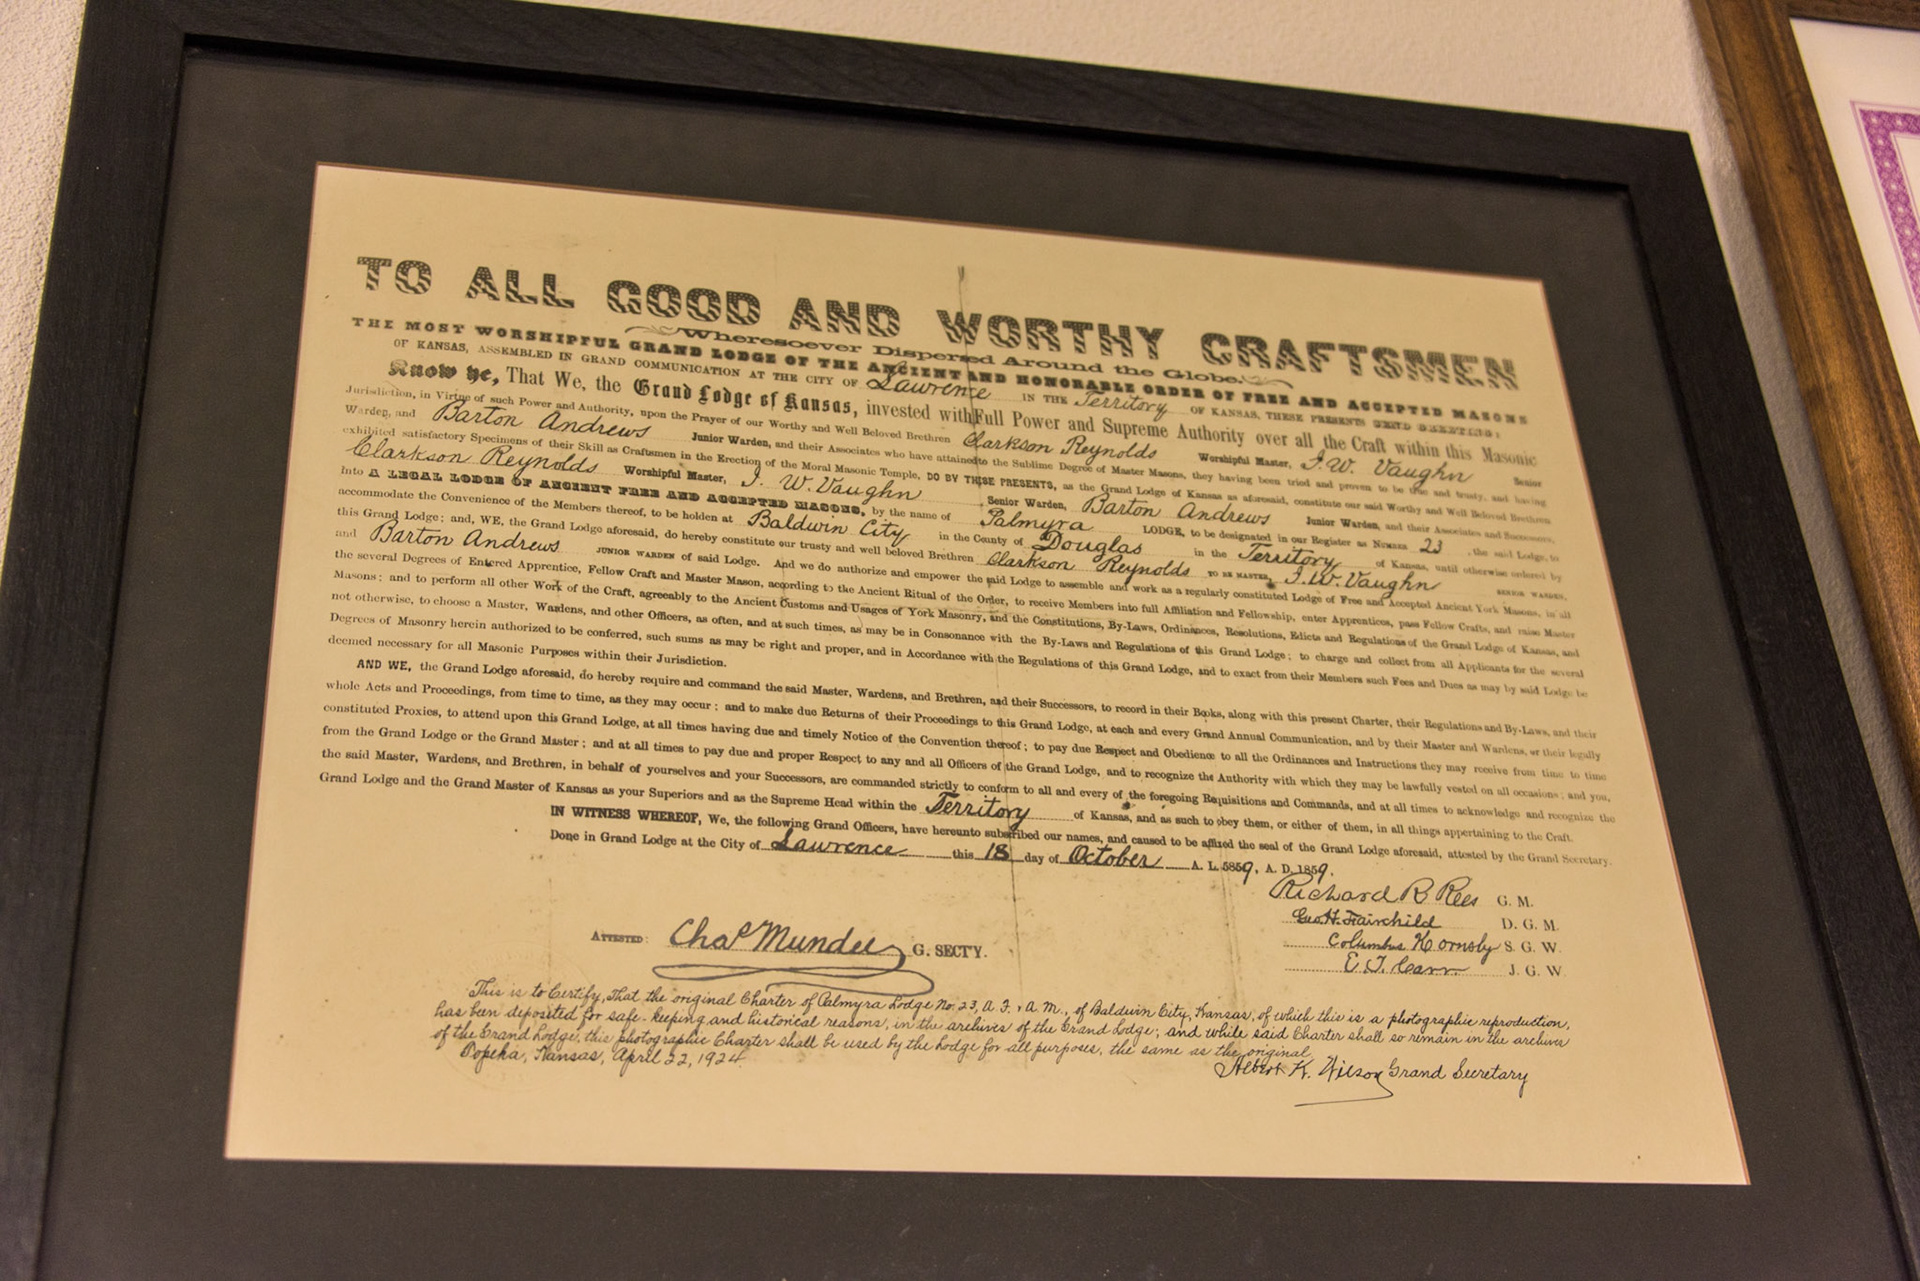 TO ALL GOOD AND WORTHY CRAFTSMEN
Wheresoever Dispersed Around the Globe.
THE MOST WORSHIPFUL GRAND LODGE OF THE ANCIENT AND HONORABLE ORDER OF FREE AND ACCEPTED MASONS
OF KANSAS, ASSEMBLED IN GRAND COMMUNICATION AT THE CITY OF Lawrence IN THE Territory OF KANSAS, THESE PRESENTS SEND GREETING:
Know ye, That We, the Grand Lodge of Kansas, invested with Full Power and Supreme Authority over all the Craft within this Masonic
Jurisdiction, in Virtue of such Power and Authority, upon the Prayer of our Worthy and Well Beloved Brethren Clarkson Reynolds Worshipful Master, J. W. Vaughn Senior
Warden, and Barton Andrews Junior Warden, and their Associates who have attained to the Sublime Degree of Master Masons, they having been tried and proven to be true and trusty, and having
exhibited satisfactory Specimens of their Skill as Craftsmen in the Erection of the Moral Masonic Temple, DO BY THESE PRESENTS, as the Grand Lodge of Kansas as aforesaid, constitute our said Worthy and Well Beloved Brethren
Clarkson Reynolds Worshipful Master, J. W. Vaughn Senior Warden, Barton Andrews Junior Warden, and their Associates and Successors,
into A LEGAL LODGE OF ANCIENT FREE AND ACCEPTED MASONS, by the name of Palmyra LODGE, to be designated in our Register as NUMBER 23, the said Lodge, to
accommodate the Convenience of the Members thereof, to be holden at Baldwin City in the County of Douglas in the Territory of Kansas, until otherwise ordered by
this Grand Lodge; and, WE, the Grand Lodge aforesaid, do hereby constitute our trusty and well beloved Brethren Clarkson Reynolds TO BE MASTER, J. W. Vaughn SENIOR WARDEN,
and Barton Andrews JUNIOR WARDEN of said Lodge. And we do authorize and empower the said Lodge to assemble and work as a regularly constituted Lodge of Free and Accepted Ancient York Masons, in all
the several Degrees of Entered Apprentice, Fellow Craft and Master Mason, according to the Ancient Ritual of the Order, to receive Members into full Affiliation and Fellowship, enter Apprentices, pass Fellow Crafts, and raise Master
Masons; and to perform all other Work of the Craft, agreeably to the Ancient Customs and Usages of York Masonry, and the Constitutions, By-Laws, Ordinances, Resolutions, Edicts and Regulations of the Grand Lodge of Kansas, and
not otherwise, to choose a Master, Wardens, and other Officers, as often, and at such times, as may be in Consonance with the By-Laws and Regulations of this Grand Lodge; to charge and collect from all Applicants for the several
Degrees of Masonry herein authorized to be conferred, such sums as may be right and proper, and in Accordance with the Regulations of this Grand Lodge, and to exact from their Members such Fees and Dues as may by said Lodge be
deemed necessary for all Masonic Purposes within their Jurisdiction.
AND WE, the Grand Lodge aforesaid, do hereby require and command the said Master, Wardens, and Brethren, and their Successors, to record in their Books, along with this present Charter, their Regulations and By-Laws, and their
whole Acts and Proceedings, from time to time, as they may occur; and to make due Returns of their Proceedings to this Grand Lodge, at each and every Grand Annual Communication, and by their Master and Wardens, or their legally
constituted Proxies, to attend upon this Grand Lodge, at all times having due and timely Notice of the Convention thereof; to pay due Respect and Obedience to all the Ordinances and Instructions they may receive from time to time
from the Grand Lodge or the Grand Master; and at all times to pay due and proper Respect to any and all Officers of the Grand Lodge, and to recognize the Authority with which they may be lawfully vested on all occasions; and you,
the said Master, Wardens, and Brethren, in behalf of yourselves and your Successors, are commanded strictly to conform to all and every of the foregoing Requisitions and Commands, and at all times to acknowledge and recognize the
Grand Lodge and the Grand Master of Kansas as your Superiors and as the Supreme Head within the Territory of Kansas, and as such to obey them, or either of them, in all things appertaining to the Craft.
IN WITNESS WHEREOF, We, the following Grand Officers, have hereunto subscribed our names, and caused to be affixed the seal of the Grand Lodge aforesaid, attested by the Grand Secretary.
Done in Grand Lodge at the City of Lawrence this 18 day of October A. L. 5859, A. D. 1859.
Richard R Rees G. M.
Geo. H. Fairchild D. G. M.
Columbus Hornsby S. G. W.
E. T. Carr J. G. W.
ATTESTED: Chas Mundee G. SECTY.
This is to Certify, That the original Charter of Palmyra Lodge No. 23, A. F. & A. M., of Baldwin City, Kansas, of which this is a photographic reproduction,
has been deposited for safe-keeping and historical reasons, in the archives of the Grand Lodge; and while said Charter shall so remain in the archives
of the Grand Lodge, this photographic Charter shall be used by the Lodge for all purposes, the same as the original.
Topeka, Kansas, April 22, 1924.
Albert K. Wilson Grand Secretary